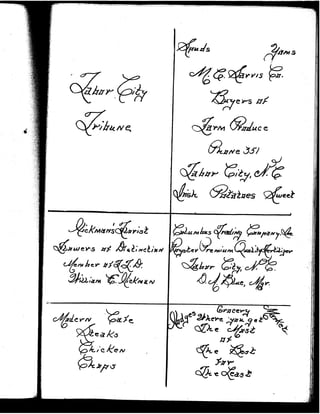 Tabor City
Tribune
Spuds Yams
M. C. Harris Co.
Buyers of
Farm Produce
Phone 351
Tabor City, N.C.
Irish Potatoes Sweet
Hickman's Florist
Flowers of Distinction
Member of F.T.D.
William E. Hickman
Columbus Trading Company, Inc
Royster Premium Quality Fertilizer
Tabor City, N.C.
Blue, Mgr.
Modern Cafe
Steaks
Chicken
Chops
Grocery Market
Where you get
The Most
of
The Best
for
The Least